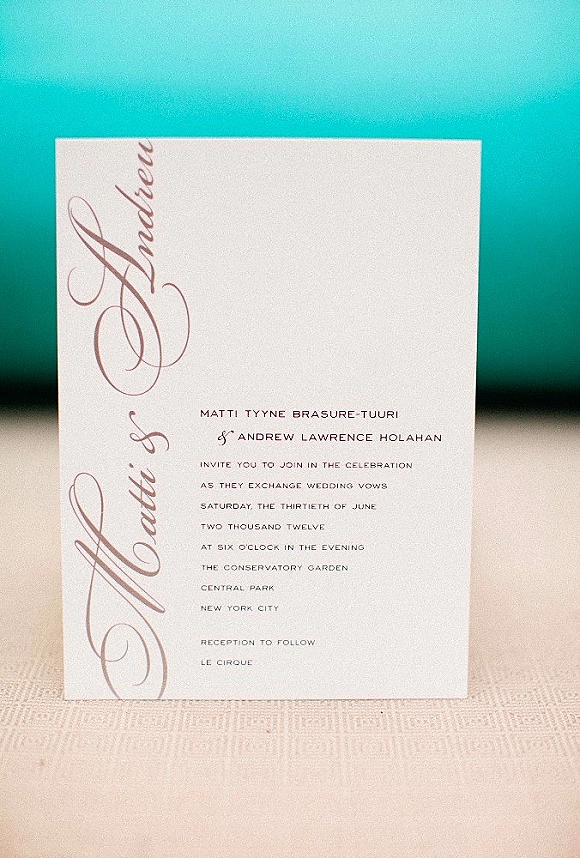 Matti & Andrew
MATTI TYYNE BRASURE-TUURI
& ANDREW LAWRENCE HOLAHAN
INVITE YOU TO JOIN IN THE CELEBRATION
AS THEY EXCHANGE WEDDING VOWS
SATURDAY, THE THIRTIETH OF JUNE
TWO THOUSAND TWELVE
AT SIX O'CLOCK IN THE EVENING
THE CONSERVATORY GARDEN
CENTRAL PARK
NEW YORK CITY
RECEPTION TO FOLLOW
LE CIRQUE